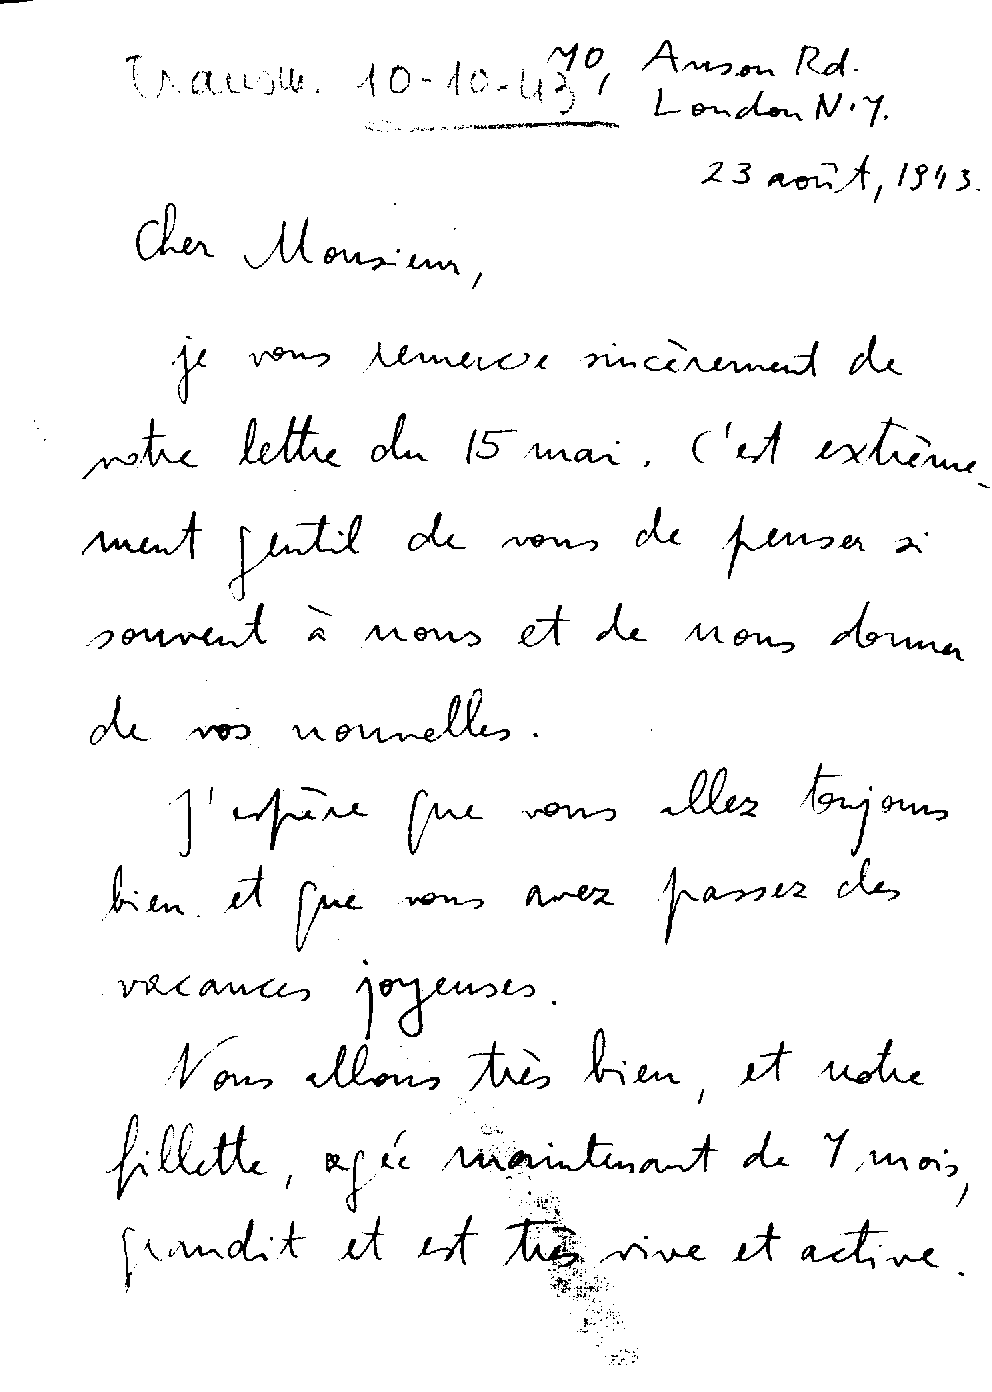 Transm. 10-10-43
70, Anson Rd.
London N.7.
23 août, 1943.
Cher Monsieur,
je vous remercie sincèrement de
votre lettre du 15 mai. C'est extrême-
ment gentil de vous de penser si
souvent à nous et de nous donner
de vos nouvelles.
J'espère que vous allez toujours
bien et que vous avez passez des
vacances joyeuses.
Nous allons très bien, et notre
fillette, agée maintenant de 7 mois,
grandit et est très vive et active.